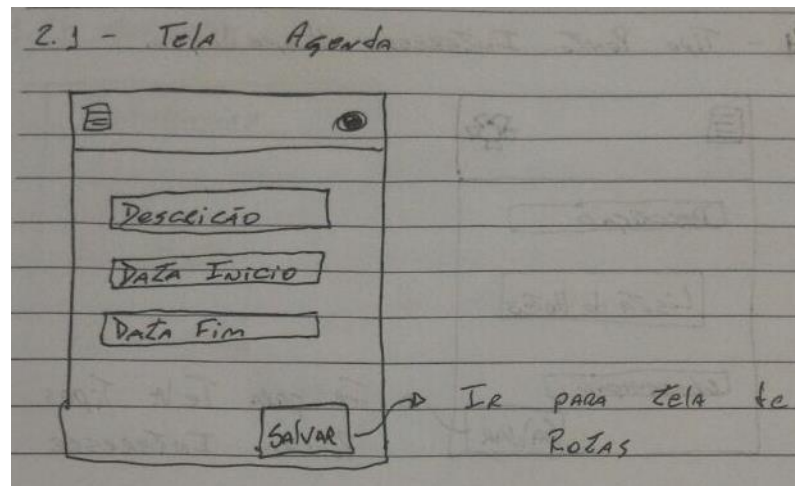 2.1 - Tela Agenda
Descrição
Data Inicio
Data Fim
Salvar
Ir para tela de
Rotas